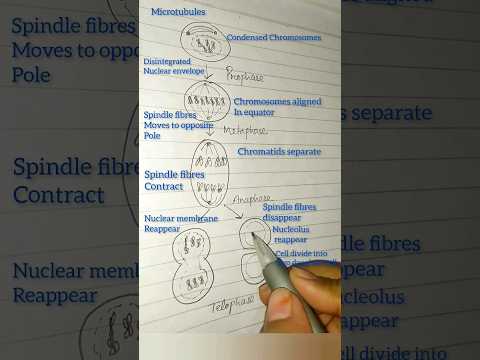 Microtubules
Condensed Chromosomes
Spindle fibres
Moves to opposite
Pole
Disintegrated
Nuclear envelope
Prophase
Chromosomes aligned
In equator
Spindle fibres
Moves to opposite
Pole
Metaphase
separate
Chromatids separate
Spindle fibres
Contract
Spindle fibres
Contract
Anaphase
Spindle fibres
disappear
Nuclear membrane
Reappear
Nucleolus
reappear
fibres
Nuclear
Reappear
Cell divide into
Telophase